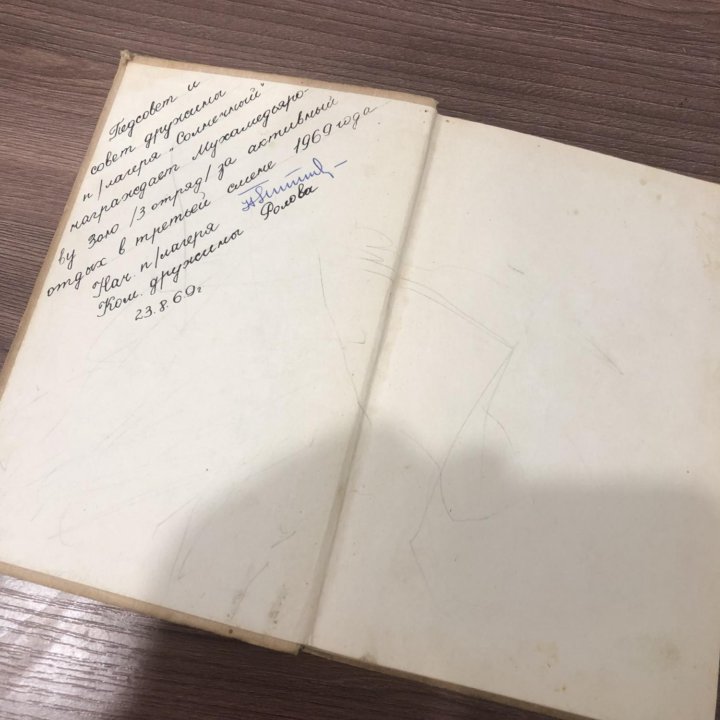 Педсовет и
совет дружины
п/лагеря "Солнечный"
награждает Мухамедьяро-
ву Зою /3 отряд/ за активный
отдых в третьей смене 1969 года
Нач. п/лагеря
Ком. дружины Фолова
23.8.69г